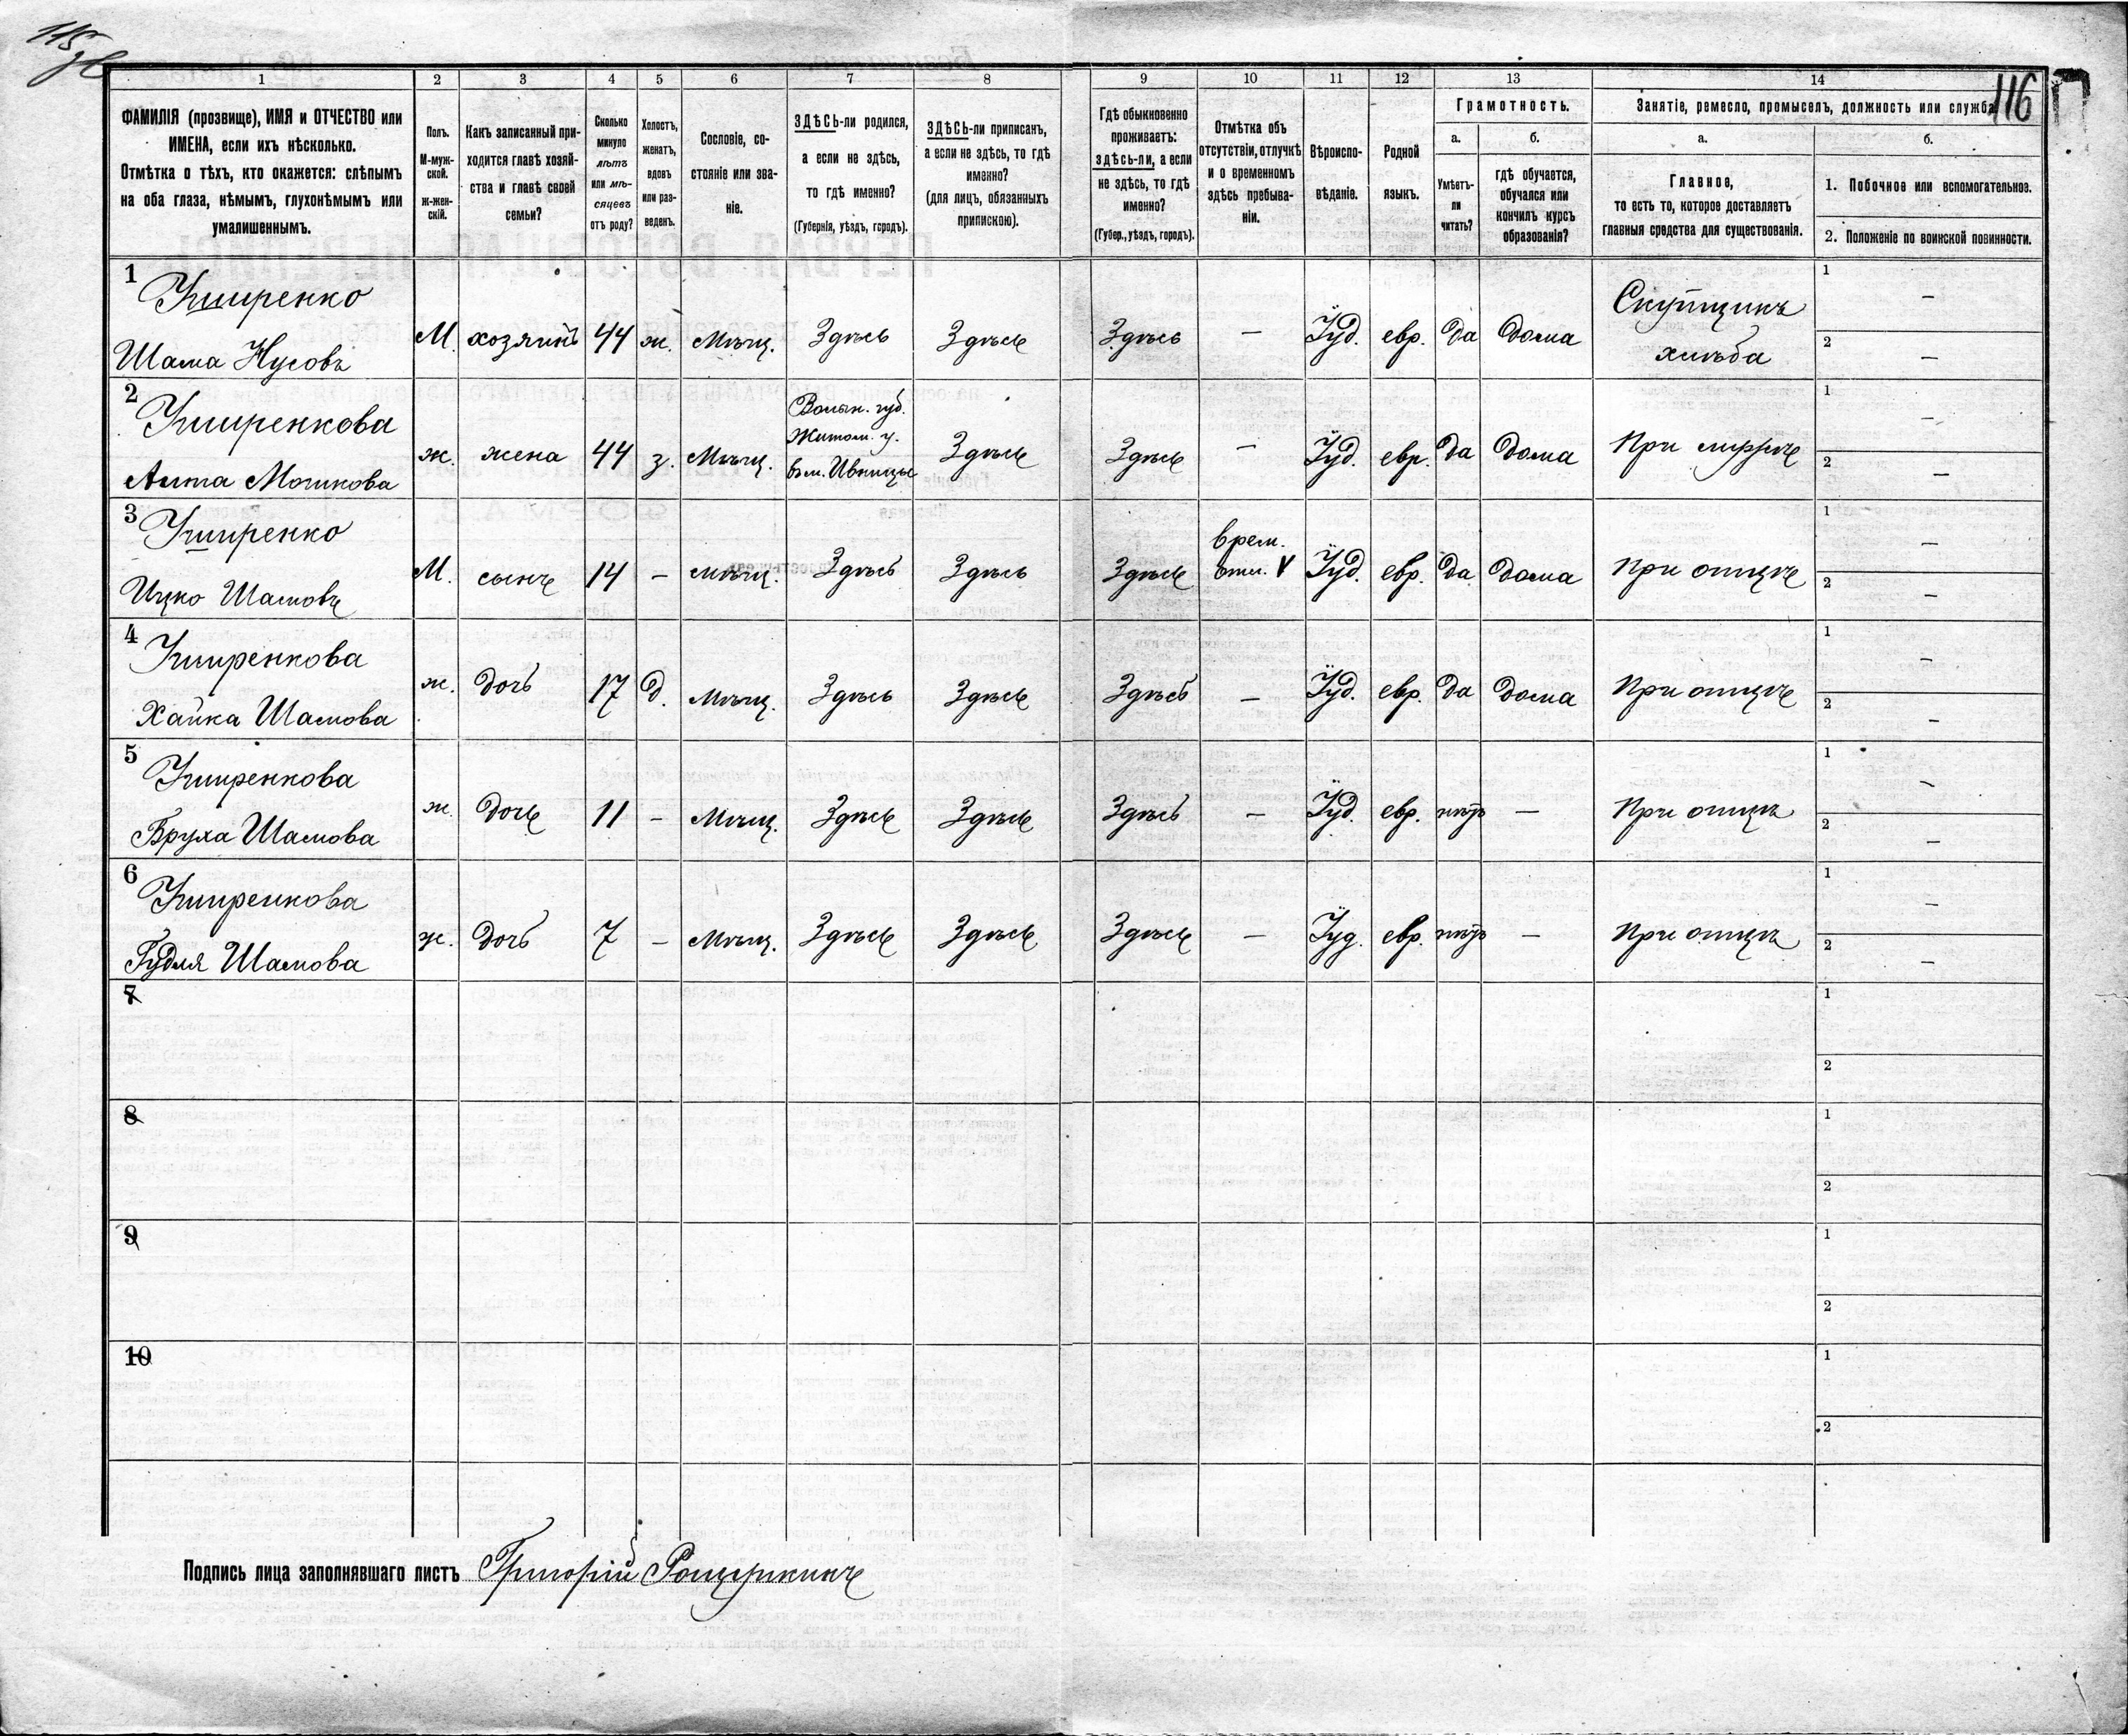 115
116
1 2 3 4 5 6 7 8 9 10 11 12 13 14
ФАМИЛІЯ (прозвище), ИМЯ и ОТЧЕСТВО или
ИМЕНА, если ихъ нѣсколько.
Отмѣтка о тѣхъ, кто окажется: слѣпымъ
на оба глаза, нѣмымъ, глухонѣмымъ или
умалишеннымъ.
Полъ.
М-муж-
ской.
ж-жен-
скій.
Какъ записанный при-
ходится главѣ хозяй-
ства и главѣ своей
семьи?
Сколько
минуло
лѣтъ
или мѣ-
сяцевъ
отъ роду?
Холостъ,
женатъ,
вдовъ
или раз-
веденъ.
Сословіе, со-
стояніе или зва-
ніе.
ЗДѢСЬ-ли родился,
а если не здѣсь,
то гдѣ именно?
(Губернія, уѣздъ, городъ).
ЗДѢСЬ-ли приписанъ,
а если не здѣсь, то гдѣ
именно?
(для лицъ, обязанныхъ
припискою).
Гдѣ обыкновенно
проживаетъ:
здѣсь-ли, а если
не здѣсь, то гдѣ
именно?
(Губер., уѣздъ, городъ).
Отмѣтка объ
отсутствіи, отлучкѣ
и о временномъ
здѣсь пребыва-
ніи.
Вѣроиспо-
вѣданіе.
Родной
языкъ.
Грамотность.
а.
Умѣетъ-
ли
читать?
б.
гдѣ обучается,
обучался или
кончилъ курсъ
образованія?
Занятіе, ремесло, промыселъ, должность или служба
а.
Главное,
то есть то, которое доставляетъ
главныя средства для существованія.
б.
1. Побочное или вспомогательное.
2. Положеніе по воинской повинности.
1
Шама Нусовъ
М. хозяинъ 44 ж. Мѣщ. Здѣсь Здѣсь Здѣсь — Іуд. евр. Да Дома
Скупщикъ
хлѣба
1 —
2 —
2
Мошкова
ж. жена 44 з. Мѣщ.
Волын. губ.
Житом. у.
въ м. Ивницѣ
Здѣсь Здѣсь — Іуд. евр. Да Дома При мужѣ
1 —
2 —
3
Ицко Шамовъ
М. сынъ 14 — мѣщ. Здѣсь Здѣсь Здѣсь
врем.
отл. V
Іуд. евр. Да Дома При отцѣ
1 —
2 —
4
Хайка Шамова
ж. Дочь 17 Д. Мѣщ. Здѣсь Здѣсь Здѣсь — Іуд. евр. Да Дома При отцѣ
1 —
2 —
5
Бруха Шамова
ж. Дочь 11 — Мѣщ. Здѣсь Здѣсь Здѣсь — Іуд. евр. нѣтъ — При отцѣ
1 —
2 —
6
Гудля Шамова
ж. Дочь 7 — Мѣщ. Здѣсь Здѣсь Здѣсь — Іуд. евр. нѣтъ — При отцѣ
1 —
2 —
7
1
2
8
1
2
9
1
2
10
1
2
Подпись лица заполнявшаго листъ Григорій